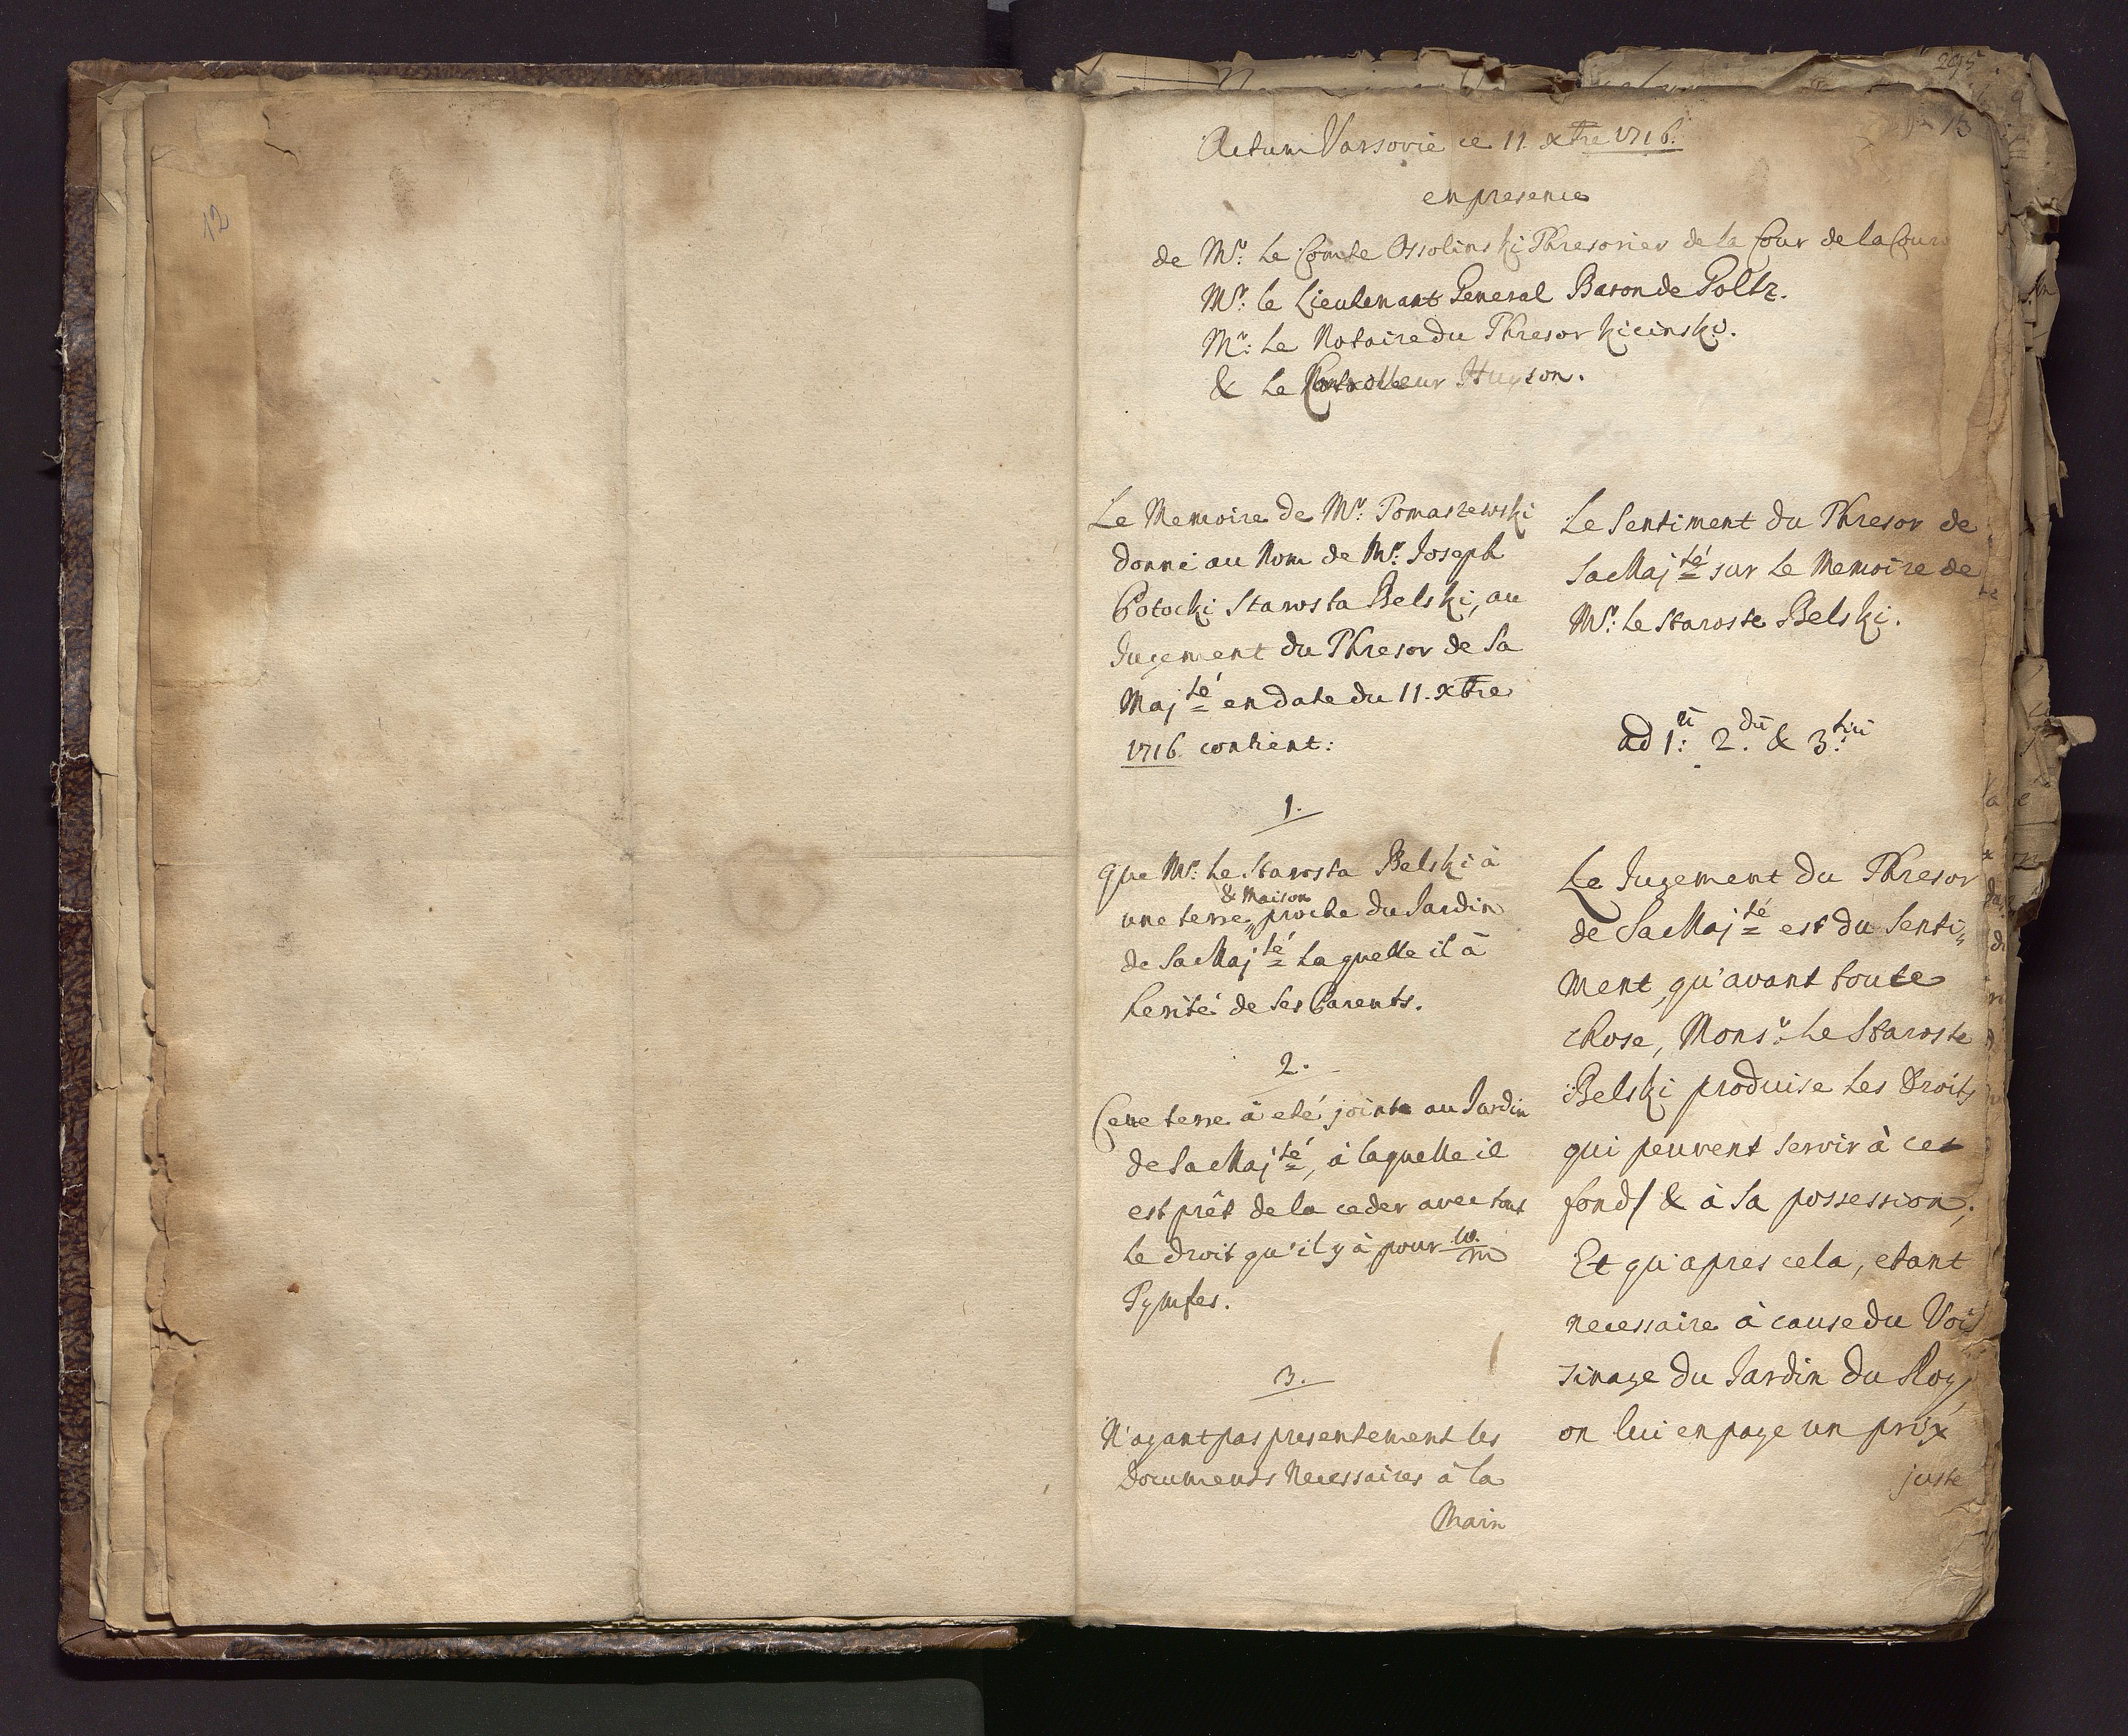 12
295
13
Actum Varsovie ce 11. xbre 1716.
en presence
de Mr: le Comte Ossolinski Thresorier de la Cour de la Cour
Mr: le Lieutenant General Baron de Goltz.
Mr: le Notaire du Thresor Kicinski.
& le Controlleur
Le Memoire de Mr: Tomaszewski
donné au Nom de Mr: Joseph
Potocki Starosta Belski, au
Jugement du Thresor de Sa
Majté en date du 11. xbre
1716. contient:
1.
que Mr: le Starosta Belski à
& Maison
une terre, proche du Jardin
de Sa Majté laquelle il à
herité de ses Parents.
2.
Cette terre à eté jointe au Jardin
de Sa Majté, à laquelle il
est prêt de la ceder avec tout
le droit qu'il y à pour 10/m
Tymfes.
3.
N'ayant pas presentement les
documents necessaires à la
Main
Le Sentiment du Thresor de
Sa Majté sur le Memoire de
Mr: le Staroste Belski.
ad 1.ū 2.dū & 3.tiū
Le Jugement du Thresor
de Sa Majté est du Senti„
ment, qu'avant toute
chose, Monsr: le Staroste
Belski produise les droits
qui peuvent servir à cet
fonds & à sa possession;
Et qu'apres cela, etant
necessaire à cause du Voi
sinage du Jardin du Roy,
on lui en paye un prix
juste